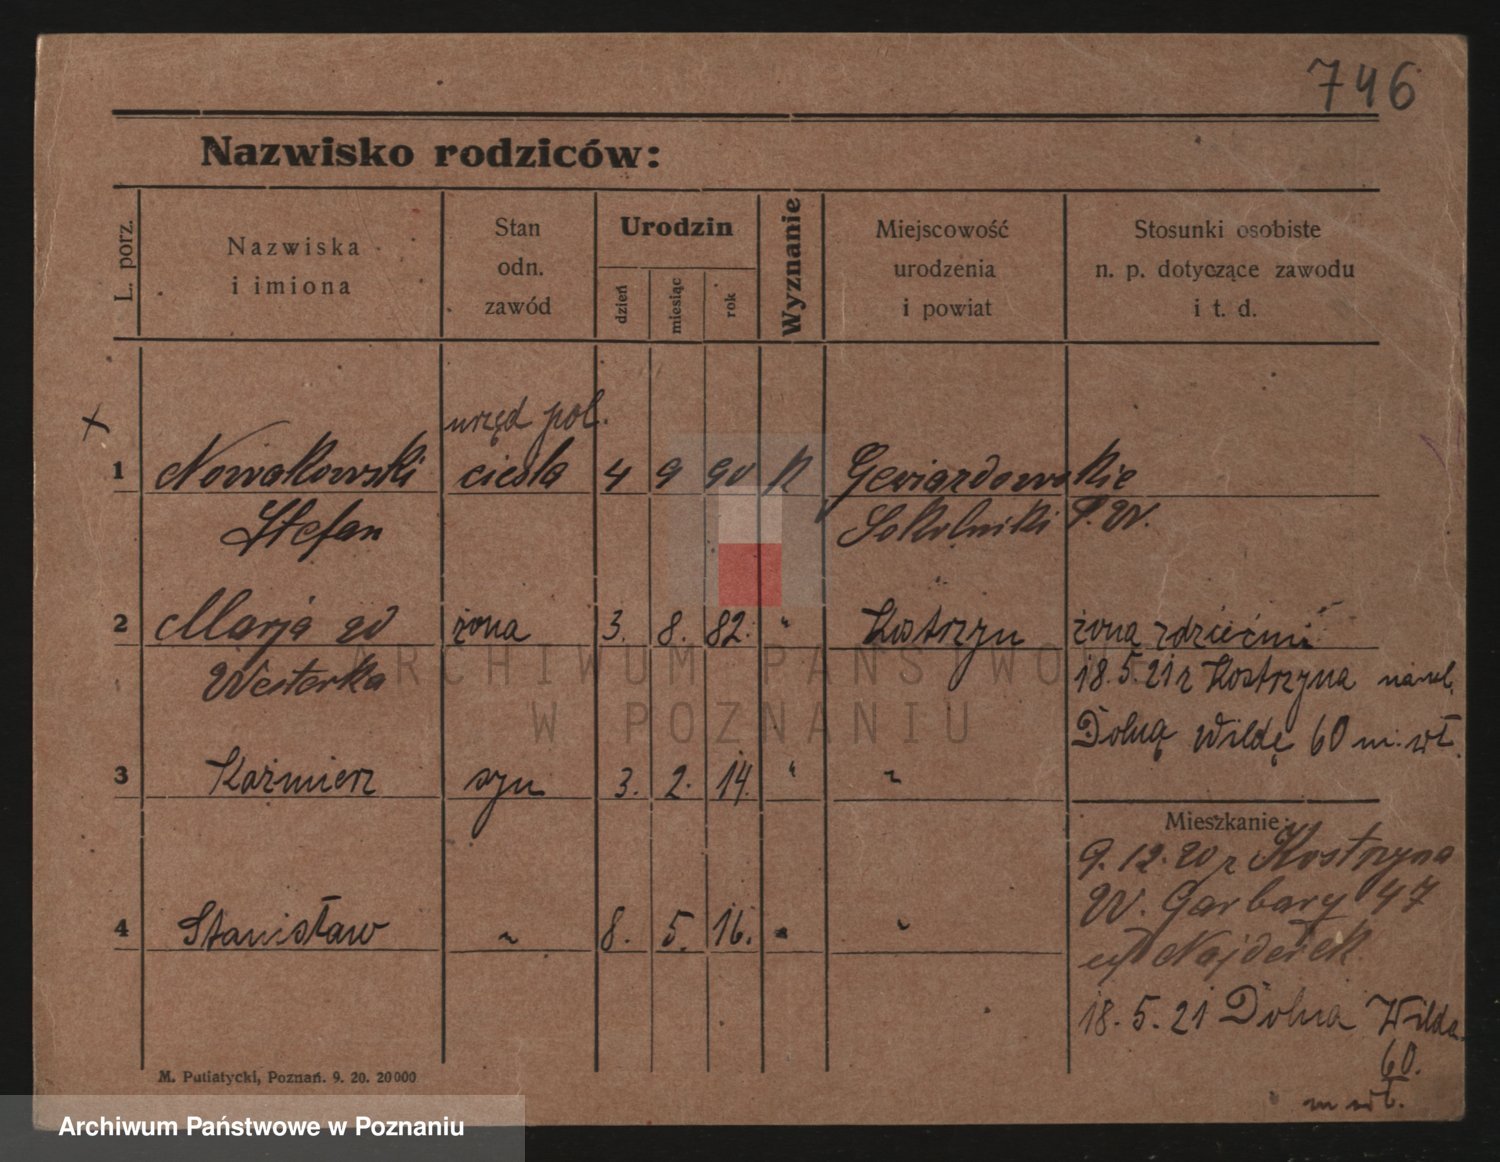 746
Nazwisko rodziców:
L. porz.
Nazwiska
i imiona
Stan
odn.
zawód
Urodzin
dzień
miesiąc
rok
Wyznanie
Miejscowość
urodzenia
i powiat
Stosunki osobiste
n. p. dotyczące zawodu
i t. d.
x
urzęd pol.
1 Nowakowski cieśla 4 9 90 K Gwiazdowskie
Stefan Sokolniki P. W.
2 Marja zd żona 3. 8. 82. " Kostrzyn żona z dziećmi
Westerka 18.5.21 z Kostrzyna
Dolną Wildę 60 m. wł.
3 Kaźmierz syn 3. 2. 14. " "
Mieszkanie:
9.12.20 z Kostrzyna
W. Garbary 47
4 Stanisław " 8. 5. 16. " "
18.5.21 Dolna Wilda
60.
m wł.
M. Putiatycki, Poznań. 9. 20. 20000
ARCHIWUM PAŃSTWOWE
W POZNANIU
Archiwum Państwowe w Poznaniu